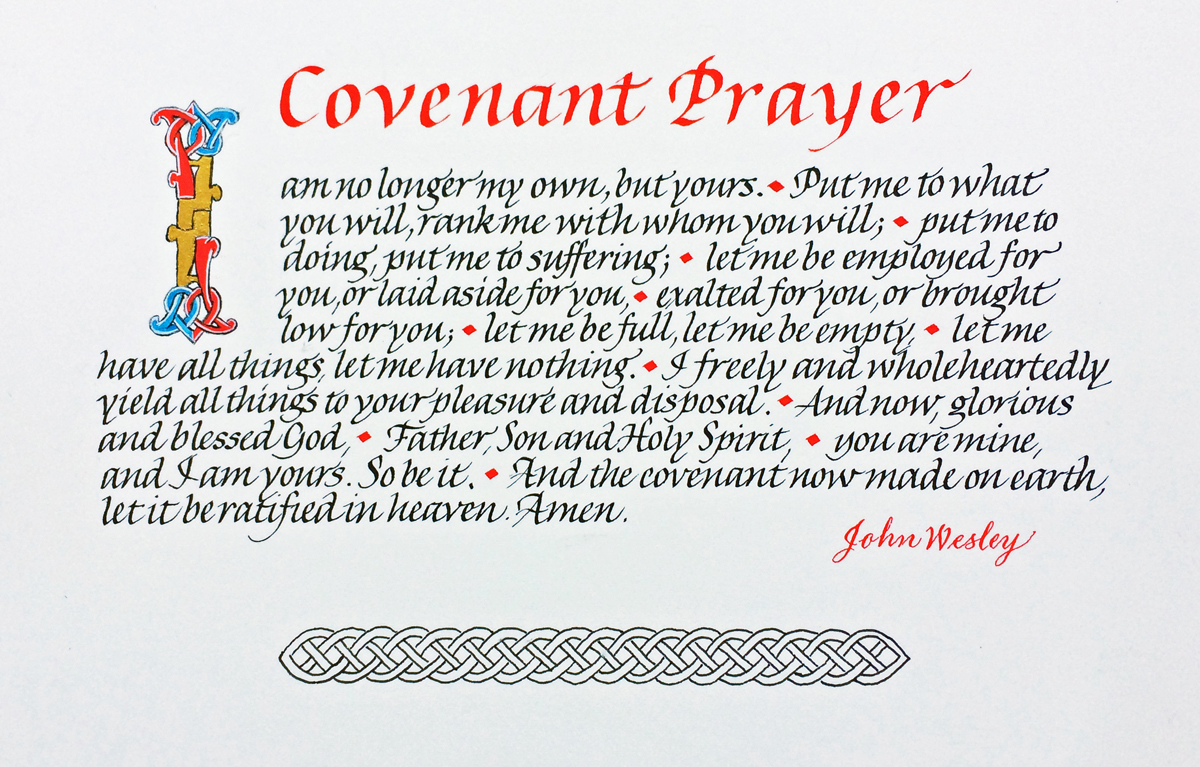 Covenant Prayer
I am no longer my own, but yours. ◆ Put me to what
you will, rank me with whom you will; ◆ put me to
doing, put me to suffering; ◆ let me be employed for
you, or laid aside for you, ◆ exalted for you, or brought
low for you; ◆ let me be full, let me be empty, ◆ let me
have all things, let me have nothing. ◆ I freely and wholeheartedly
yield all things to your pleasure and disposal. ◆ And now, glorious
and blessed God, ◆ Father, Son and Holy Spirit, ◆ you are mine,
and I am yours. So be it. ◆ And the covenant now made on earth,
let it be ratified in heaven. Amen.
John Wesley